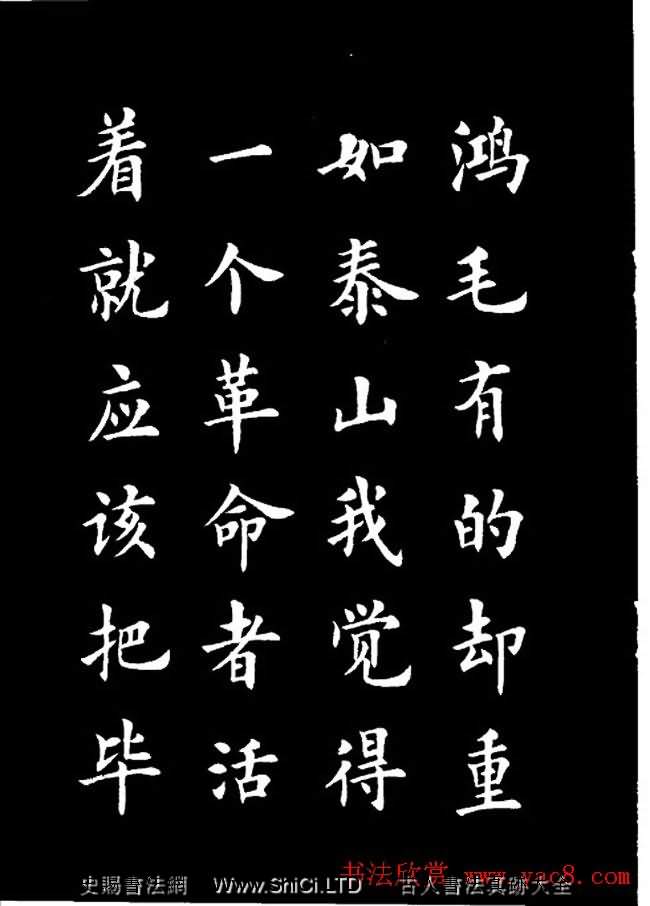 鸿毛有的却重
如泰山我觉得
一个革命者活
着就应该把毕
书法欣赏 www.yac8.com
史賜書法網 Www.ShiCi.LTD 古人書法真跡大全